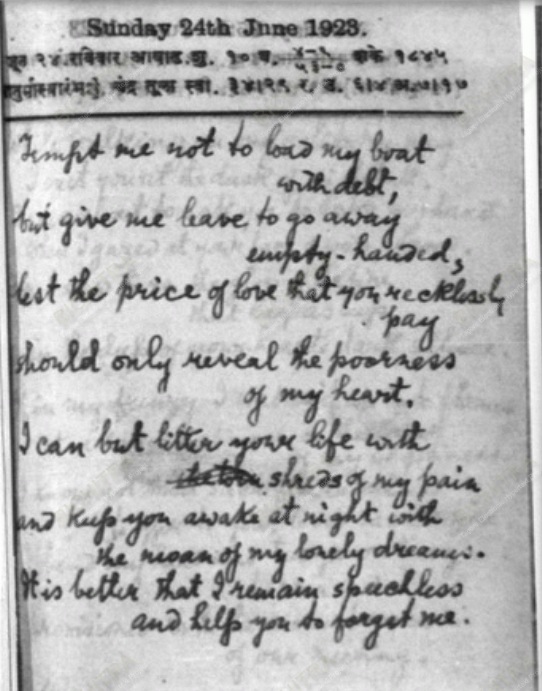 Sunday 24th June 1923.
२४ रविवार आषाढ शु. १० घ. शके १८४५
Tempt me not to load my boat
with debt,
but give me leave to go away
empty-handed,
lest the price of love that you recklessly
pay
should only reveal the poorness
of my heart.
I can but litter your life with
the torn shreds of my pain
and keep you awake at night with
the moan of my lonely dreams.
It is better that I remain speechless
and help you to forget me.